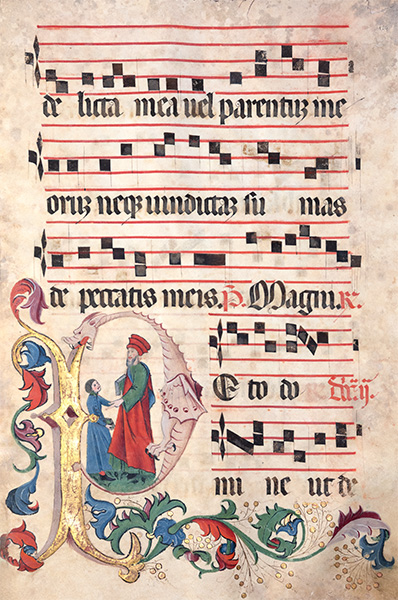 de licta mea uel parentuz me
oruz neqz uindictaz su mas
de peccatis meis. P̃. Magni. R.
PE to do
mi ne ut de